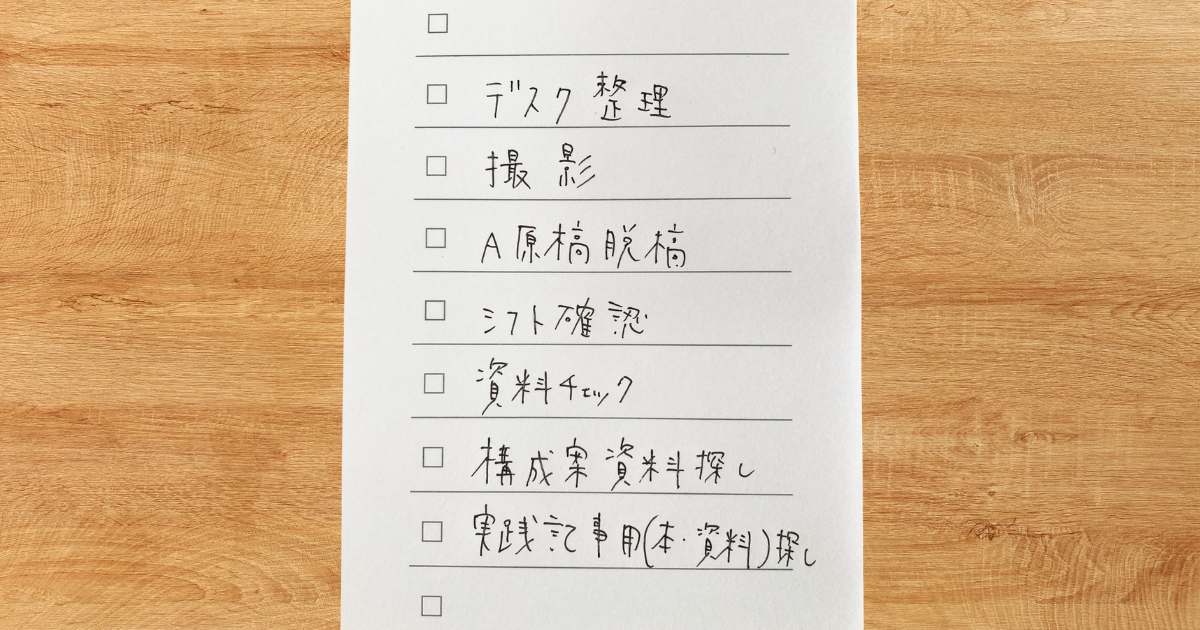 デスク整理
撮影
A原稿脱稿
シフト確認
資料チェック
構成案資料探し
実践記事用(本・資料)探し